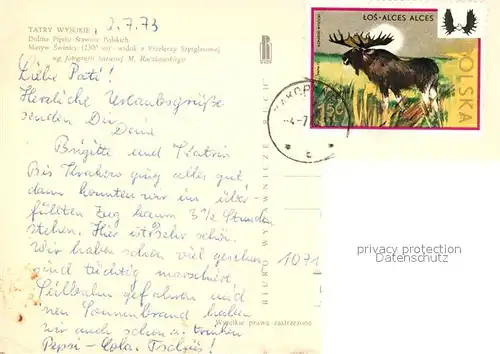 TATRY WYSOKIE, 2.7.73
Dolina Pięciu Stawów Polskich
Masyw Świnicy (2300 m) — widok z Przełęczy Szpiglasowej
wg fotografii barwnej M. Raczkowskiego
Liebe Pati!
Herzliche Urlaubsgrüße
senden Dir
Deine
Brigitte und Katrin
Bis Krakow ging alles gut
dann konnten wir im über-
füllten Zug kaum 3½ Stunden
stehen. Hier ist's sehr schön.
Wir haben schon viel gesehen
sind tüchtig marschiert
Seilbahn gefahren und
nen Sonnenbrand haben
wir auch schon u. trinken
Pepsi-Cola. Tschüs!
BIURO WYDAWNICZE RUCH
Wszelkie prawa zastrzeżone
1071
ŁOŚ-ALCES ALCES
POLSKA
1,50
-4-7
privacy protection
Datenschutz